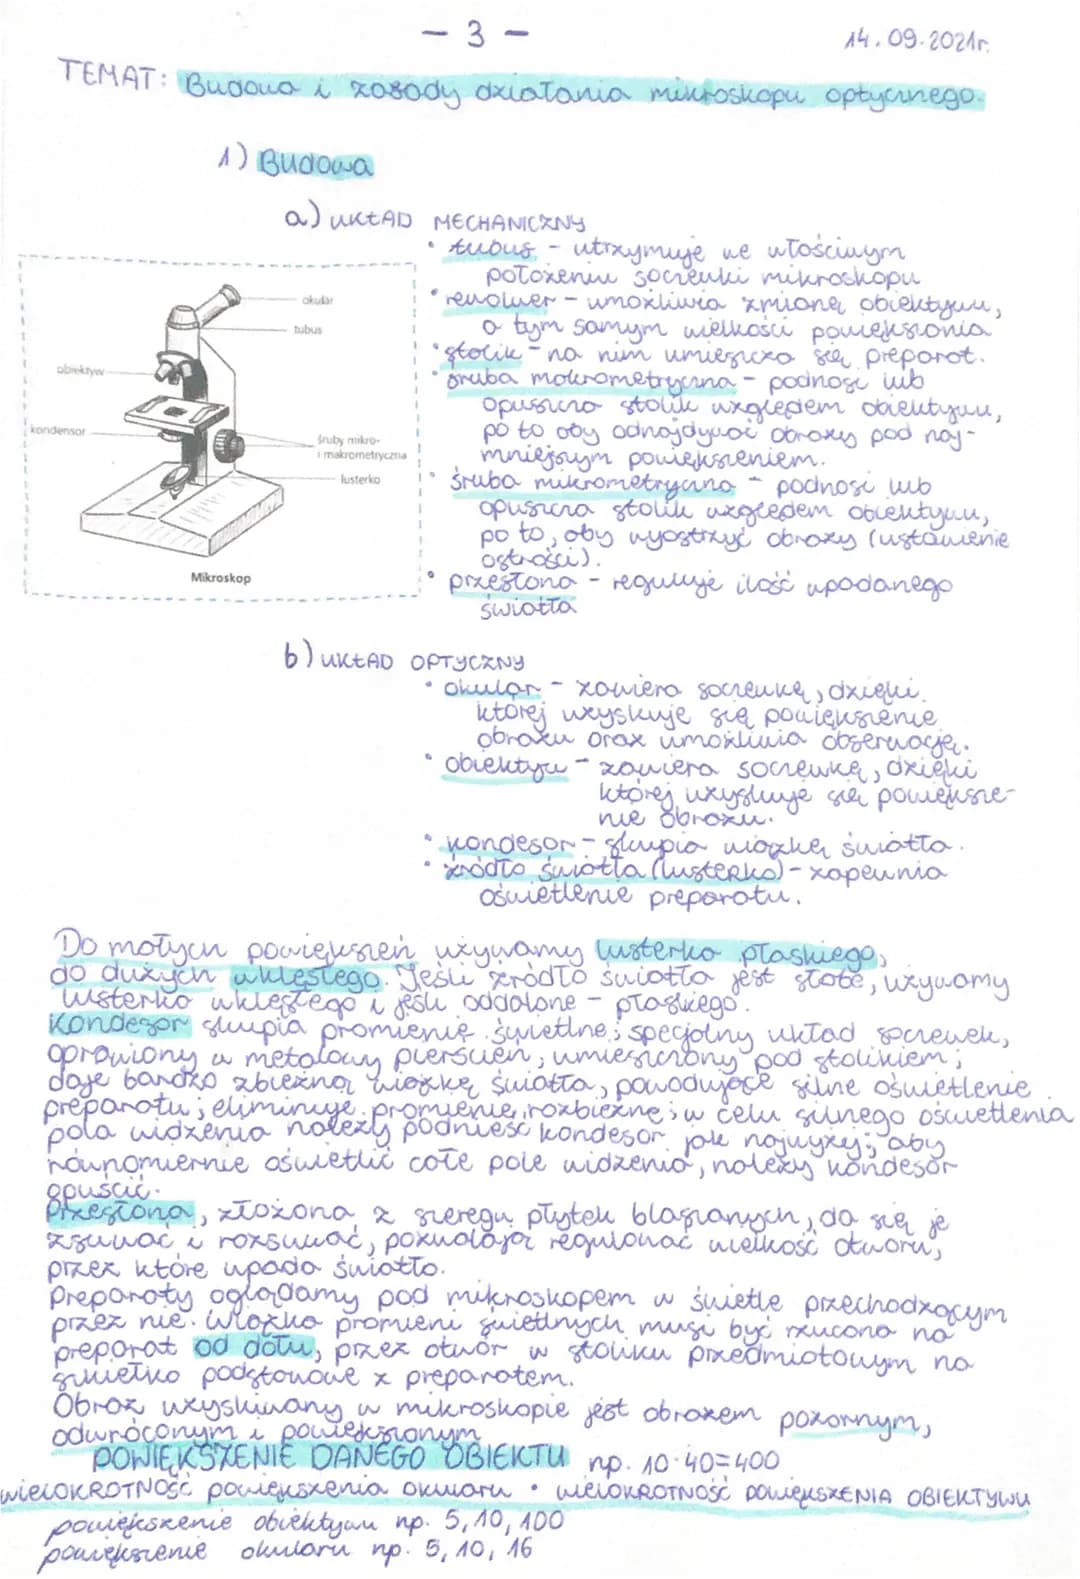 - 3 -
14.09.2021r.
TEMAT: Budowa i zasady działania mikroskopu optycznego.
1) Budowa
a) UKŁAD MECHANICZNY
• tubus - utrzymuje we właściwym
położeniu soczewki mikroskopu
• rewolwer - umożliwia zmianę obiektywu,
a tym samym wielkości powiększania
• stolik - na nim umieszcza się preparat.
• śruba makrometryczna - podnosi lub
opuszcza stolik względem obiektywu,
po to aby odnajdywać obrazy pod naj-
mniejszym powiększeniem.
• śruba mikrometryczna - podnosi lub
opuszcza stolik względem obiektywu,
po to, aby wyostrzyć obrazy (ustawienie
ostrości).
• przesłona - reguluje ilość wpadanego
światła
okular
tubus
obiektyw
kondensor
śruby mikro-
i makrometryczna
lusterko
Mikroskop
b) UKŁAD OPTYCZNY
• okular - zawiera soczewkę, dzięki
której uzyskuje się powiększenie
obrazu oraz umożliwia obserwację.
• obiektyw - zawiera soczewkę, dzięki
której uzyskuje się powiększe-
nie obrazu.
• kondesor - skupia wiązkę światła.
• źródło światła (lusterko) - zapewnia
oświetlenie preparatu.
Do małych powiększeń używamy lusterka płaskiego,
do dużych wklęsłego. Jeśli źródło światła jest słabe, używamy
lusterko wklęsłego i jeśli oddalone - płaskiego.
Kondesor skupia promienie świetlne; specjalny układ soczewek,
oprawiony w metalowy pierścień, umieszczony pod stolikiem;
daje bardzo zbieżną wiązkę światła, powodujące silne oświetlenie
preparatu; eliminuje promienie rozbieżne; w celu silnego oświetlenia
pola widzenia należy podnieść kondesor jak najwyżej; aby
równomiernie oświetlić całe pole widzenia, należy kondesor
opuścić.
Przesłona, złożona z szeregu płytek blaszanych, da się je
zsuwać i rozsuwać, pozwalają regulować wielkość otworu,
przez które wpada światło.
Preparaty oglądamy pod mikroskopem w świetle przechodzącym
przez nie. Wiązka promieni świetlnych musi być rzucona na
preparat od dołu, przez otwór w stoliku przedmiotowym na
szkiełko podstawowe z preparatem.
Obraz uzyskiwany w mikroskopie jest obrazem pozornym,
odwróconym i powiększonym
POWIĘKSZENIE DANEGO OBIEKTU np. 10·40=400
WIELOKROTNOŚĆ powiększenia okularu • WIELOKROTNOŚĆ POWIĘKSZENIA OBIEKTYWU
powiększenie obiektywu np. 5, 10, 100
powiększenie okularu np. 5, 10, 16